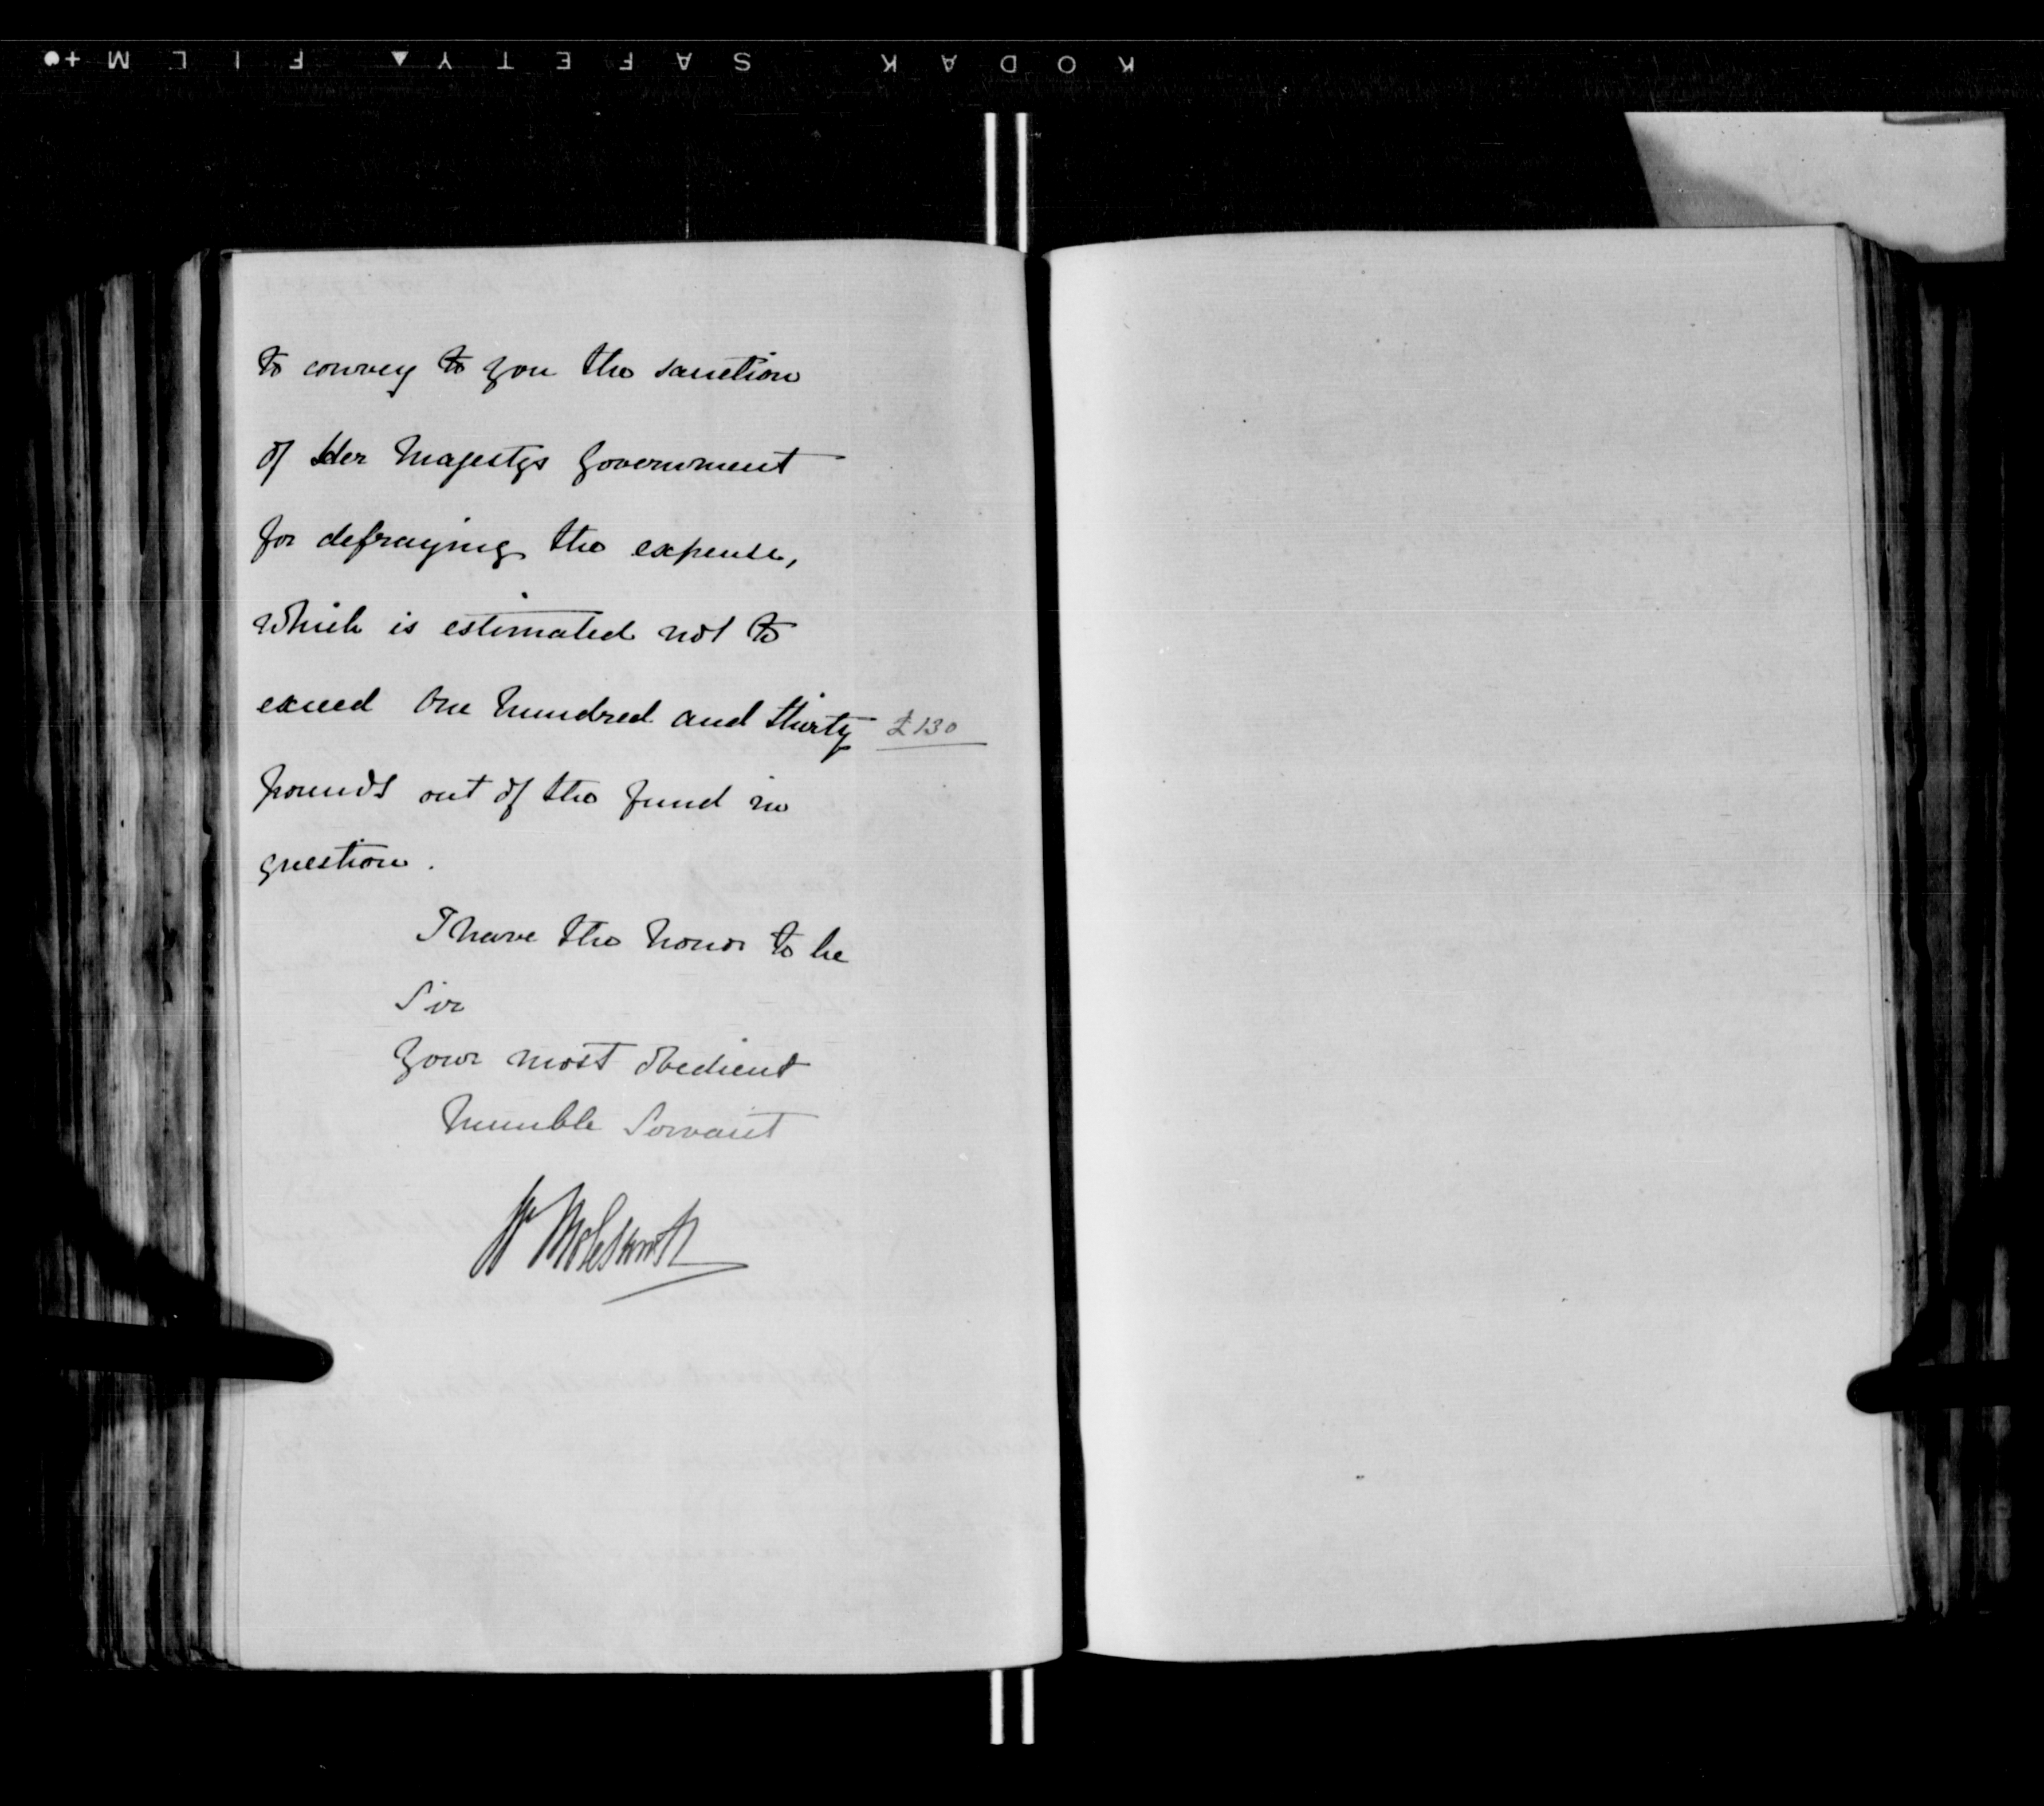 KODAK SAFETY FILM
to convey to you the sanction
of Her Majestys Government
for defraying the expense,
which is estimated not to
exceed One hundred and thirty £130
pounds out of the fund in
question.
I have the honor to be
Sir
Your most obedient
humble Servant
W Molesworth